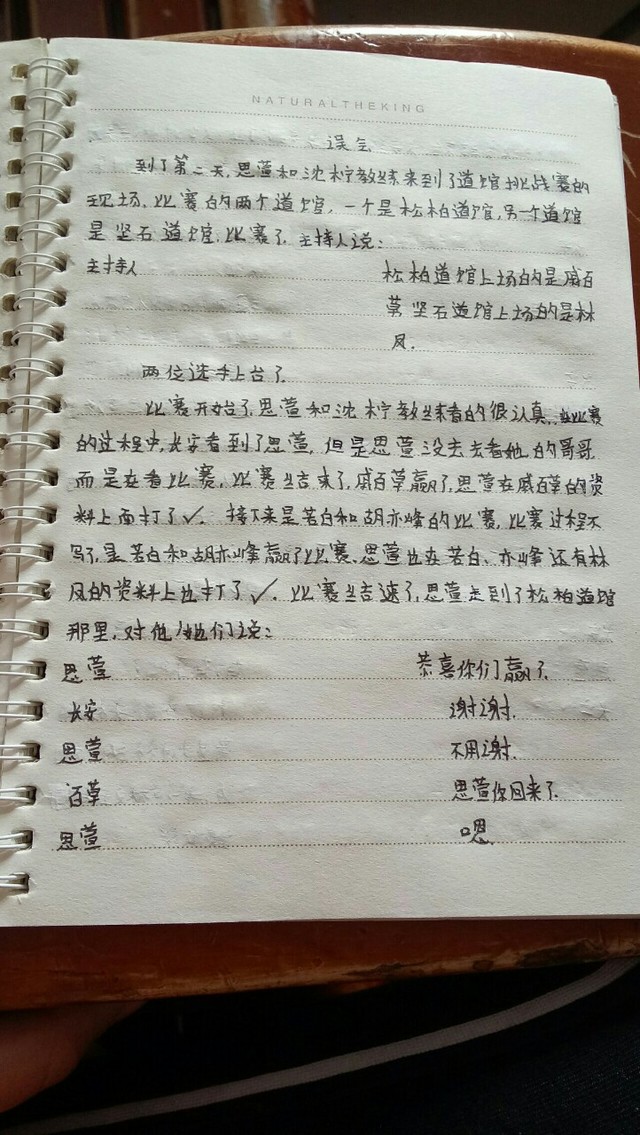 NATURALTHEKING
误会
到了第二天,思萱和沈柠教练来到了道馆挑战赛的
现场,比赛的两个道馆,一个是松柏道馆,另一个道馆
是坚石道馆,比赛了,主持人说:
主持人 松柏道馆上场的是戚百
草 坚石道馆上场的是林
凤.
两位选手上台了.
比赛开始了,思萱和沈柠教练看的很认真,在比赛
的过程中,长安看到了思萱,但是思萱没去去看她的哥哥
而是在看比赛,比赛结束了,戚百草赢了,思萱在戚百草的资
料上面打了✓.接下来是若白和胡亦峰的比赛,比赛过程不
写了,是若白和胡亦峰赢了比赛,思萱也在若白、亦峰还有林
凤的资料上也打了✓.比赛结速了,思萱走到了松柏道馆
那里,对他/她们说:
思萱 恭喜你们赢了.
长安 谢谢.
思萱 不用谢.
百草 思萱你回来了.
思萱 嗯.